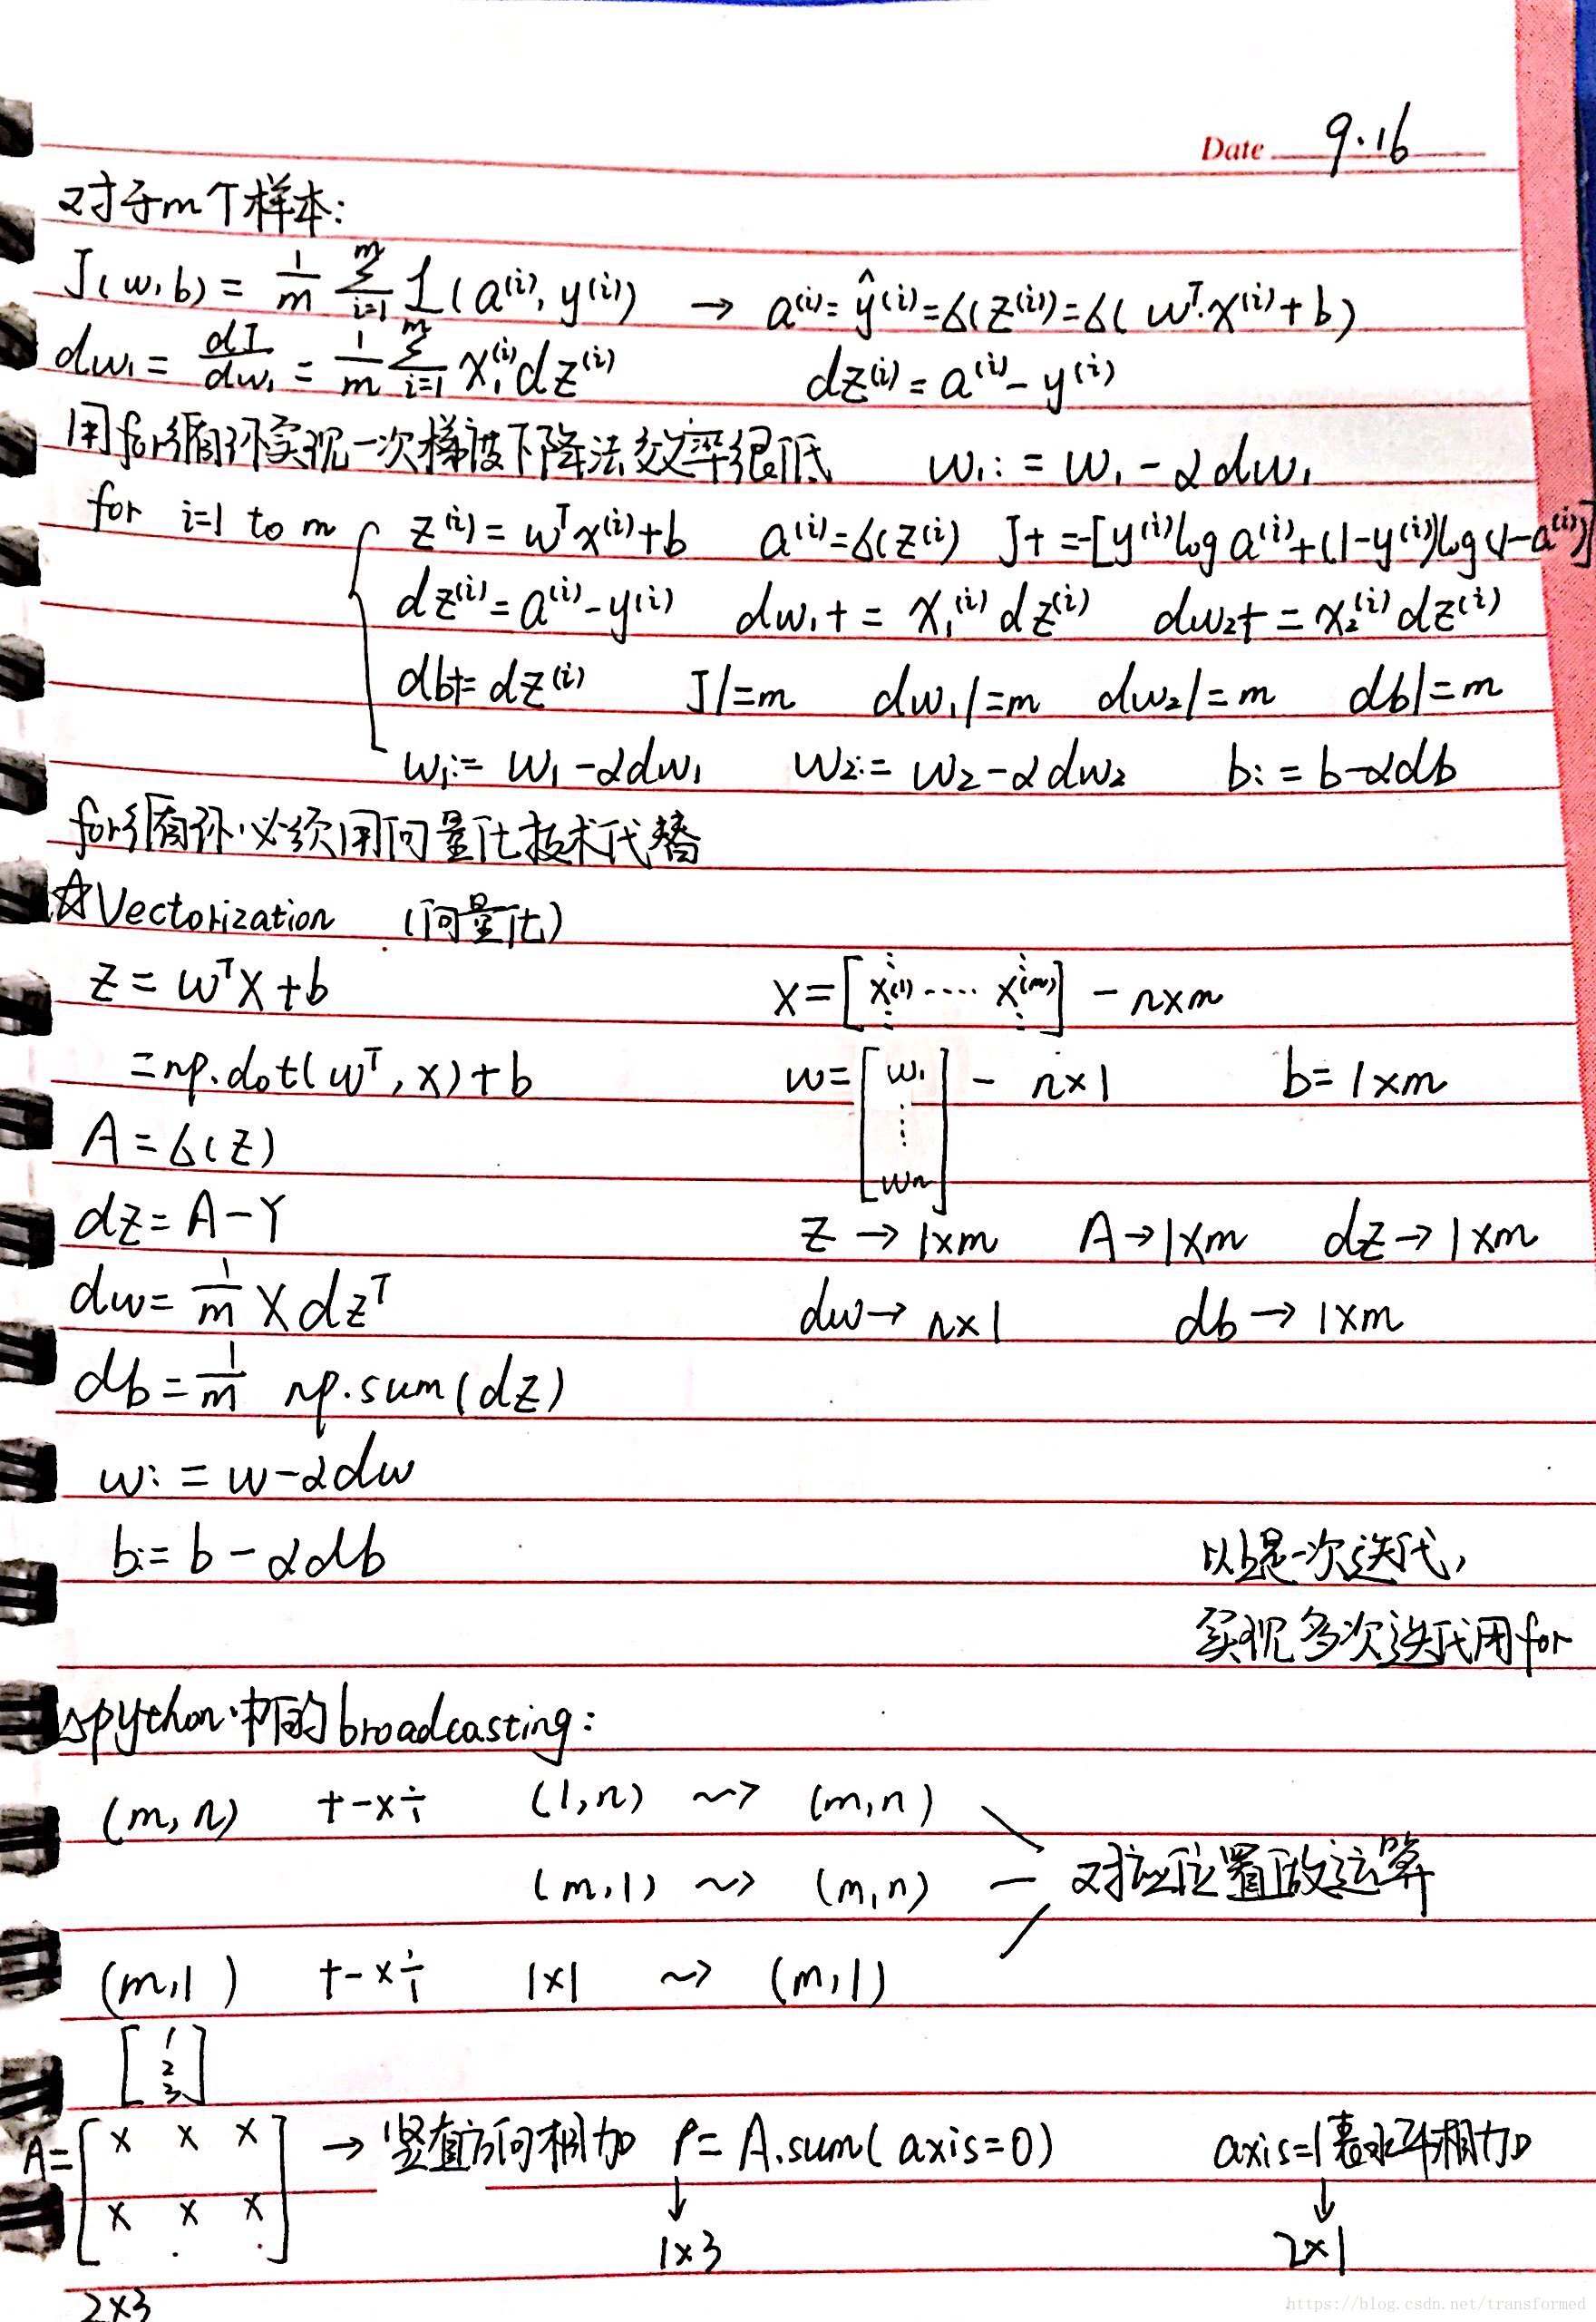 Date 9.16
对于m个样本:
J(w,b) = 1/m Σ_{i=1}^{m} L(a⁽ⁱ⁾, y⁽ⁱ⁾) → a⁽ⁱ⁾ = ŷ⁽ⁱ⁾ = σ(z⁽ⁱ⁾) = σ(wᵀ·x⁽ⁱ⁾+b)
dw₁ = dJ/dw₁ = 1/m Σ_{i=1}^{m} x₁⁽ⁱ⁾dz⁽ⁱ⁾ dz⁽ⁱ⁾ = a⁽ⁱ⁾ - y⁽ⁱ⁾
用for循环实现一次梯度下降法效率很低 w₁ := w₁ - αdw₁
for i=1 to m { z⁽ⁱ⁾ = wᵀx⁽ⁱ⁾+b a⁽ⁱ⁾ = σ(z⁽ⁱ⁾) J+ = -[y⁽ⁱ⁾log a⁽ⁱ⁾+(1-y⁽ⁱ⁾)log(1-a⁽ⁱ⁾)]
dz⁽ⁱ⁾ = a⁽ⁱ⁾ - y⁽ⁱ⁾ dw₁+ = x₁⁽ⁱ⁾dz⁽ⁱ⁾ dw₂+ = x₂⁽ⁱ⁾dz⁽ⁱ⁾
db+= dz⁽ⁱ⁾ J/=m dw₁/=m dw₂/=m db/=m
w₁:= w₁ - αdw₁ w₂:= w₂ - αdw₂ b:= b-αdb
for循环必须用向量化技术代替
☆Vectorization (向量化)
z = wᵀX + b X = [x⁽¹⁾ ···· x⁽ᵐ⁾] - n×m
= np.dot(wᵀ, x)+b w = [w₁ ⋮ wn] - n×1 b= 1×m
A = σ(z)
dz = A - Y z → 1×m A → 1×m dz → 1×m
dw = 1/m X dzᵀ dw → n×1 db → 1×m
db = 1/m np.sum(dz)
w: = w - αdw
b:= b - αdb 以上是一次迭代,
实现多次迭代用for
△python中的broadcasting:
(m, n) +-×÷ (1,n) ⇝ (m,n)
(m,1) ⇝ (m,n) — 对应位置做运算
(m,1) +-×÷ 1×1 ⇝ (m,1)
[1 2 3]
A=[× × × × × ×] → 竖直方向相加 P= A.sum(axis=0) axis=1表水平相加
↓ 1×3 ↓ 2×1
2×3
https://blog.csdn.net/transformed